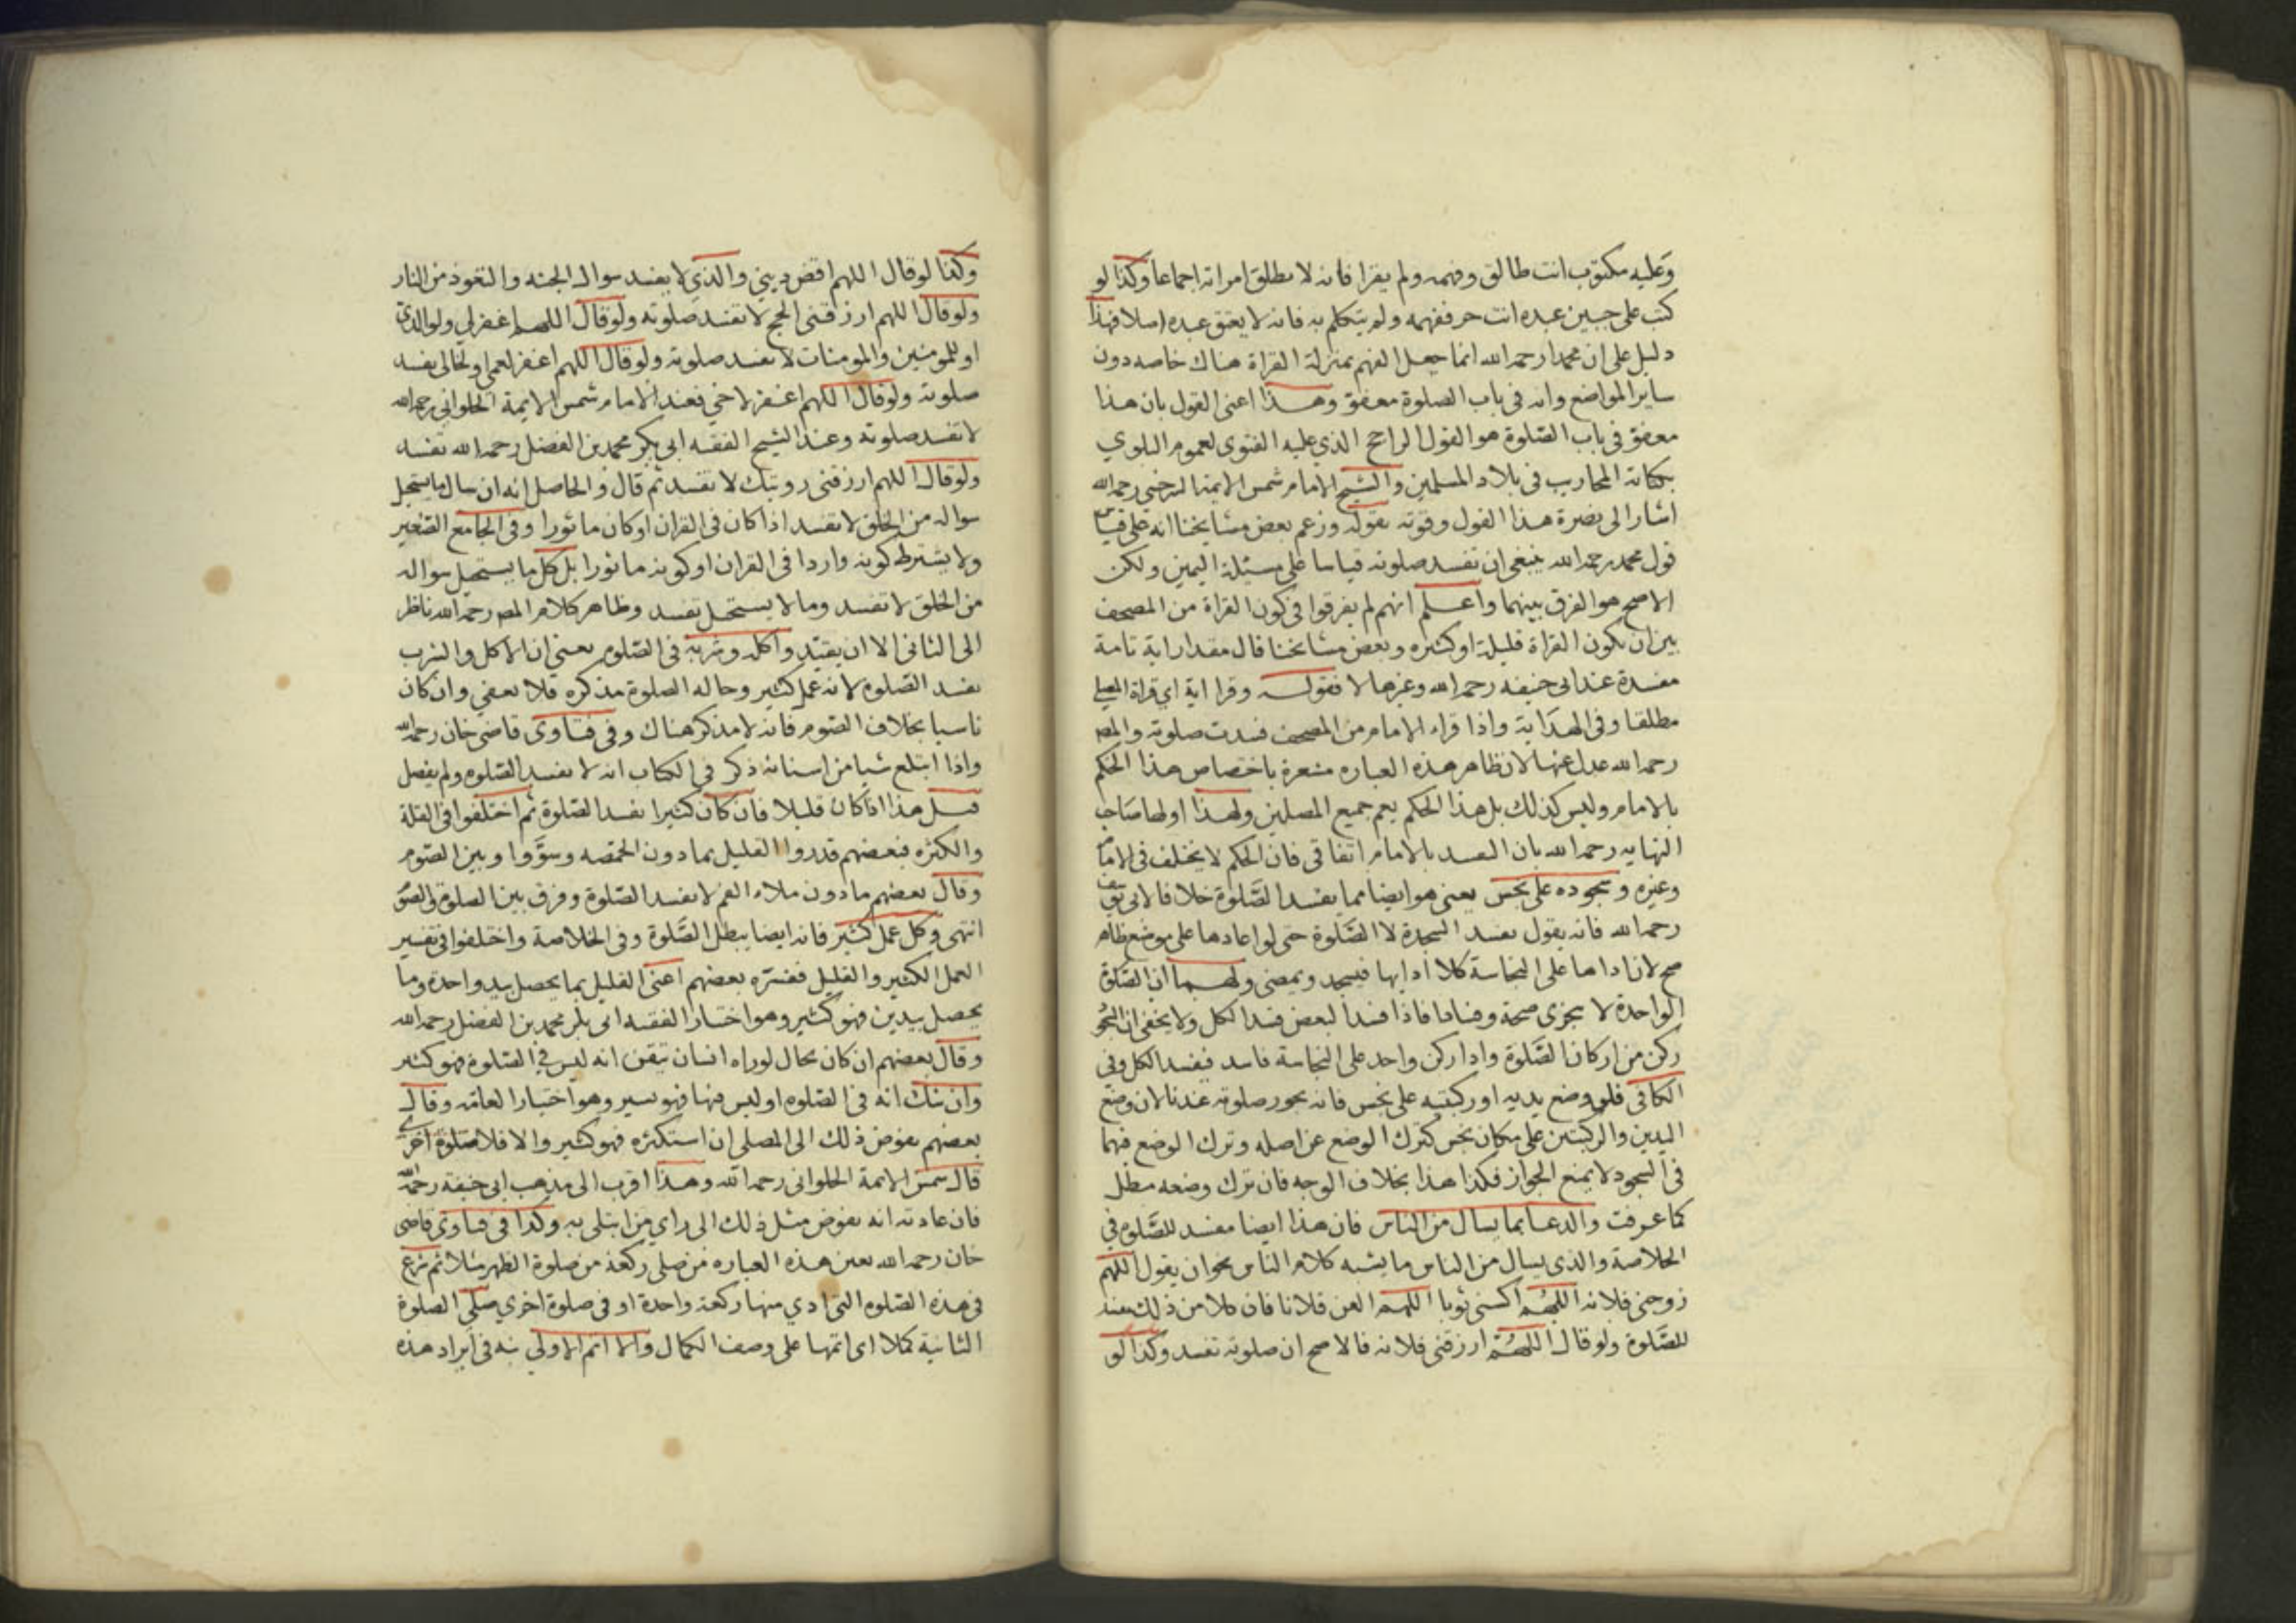 وعليه مكتوب انت طالق وفهمه ولم يقرا فانه لا تطلق امراته اجماعا وكذا لو
كتب على جبين عبده انت حر ففهمه ولم يتكلم به فانه لا يعتق عبده اصلا فهذا
دليل على ان محمدا رحمه الله انما جعل الفهم بمنزلة القراة هناك خاصه دون
ساير المواضع وانه في باب الصلوة معفو وهذا اعني القول بان هذا
معفو في باب الصلوة هو القول الراجح الذي عليه الفتوى لعموم البلوي
بكتابة المحاريب في بلاد المسلمين والشيخ الامام شمس الايمة السرخسي رحمه الله
اشار الى نصرة هذا القول وقوته بقوله وزعم بعض مشايخنا انه على قياس
قول محمد رحمه الله ينبغي ان تفسد صلوته قياسا على مسئلة اليمين ولكن
الاصح هو الفرق بينهما واعلم انهم لم يفرقوا في كون القراة من المصحف
بين ان يكون القراة قليلة او كثيره وبعض مشايخنا قال مقدار اية تامة
مفسدة عند ابي حنيفه رحمه الله وغيرها لا فقوله وقرا اية اي قراة المصلي
مطلقا وفي الهداية واذا قراء الامام من المصحف فسدت صلوته والمص
رحمه الله عدل عنها لان ظاهر هذه العباره مشعرة باختصاص هذا الحكم
بالامام وليس كذلك بل هذا الحكم يعم جميع المصلين ولهذا اولها صاحب
النهايه رحمه الله بان القيد بالامام اتفاقي فان الحكم لا يختلف في الامام
وغيره وسجوده على نجس يعني هو ايضا مما يفسد الصلوة خلافا لابي يوسف
رحمه الله فانه يقول تفسد السجدة لا الصلوة حتى لو اعادها على موضع طاهر
صح لان اداها على النجاسة كلا ادايها فيسجد ويمضي ولهما ان الصلوة
الواحدة لا يتجزى صحة وفسادا فاذا فسد البعض فسد الكل ولا يخفى ان السجود
ركن من اركان الصلوة واداركن واحد على النجاسة فاسد فيفسد الكل وفي
الكافي فلو وضع يديه او ركبتيه على نجس فانه يجوز صلوته عندنا لان وضع
اليدين والركبتين على مكان نجس كترك الوضع عن اصله وترك الوضع فيهما
في السجود لا يمنع الجواز فكذا هذا بخلاف الوجه فان ترك وضعه مبطل
كما عرفت والدعا بما يسال من الناس فان هذا ايضا مفسد للصلوة في
الخلاصة والذي يسال من الناس ما يشبه كلام الناس نحو ان يقول اللهم
زوجني فلانه اللهم اكسني ثوبا اللهم العن فلانا فان كلا من ذلك مفسد
للصلوة ولو قال اللهم ارزقني فلانه فالاصح ان صلوته تفسد وكذا لو
وكذا لو قال اللهم اقض ديني والذي لا يفسد سوال الجنه والتعوذ من النار
ولو قال اللهم ارزقني الحج لا تفسد صلوته ولو قال اللهم اغفر لي ولوالدي
او للمومنين والمومنات لا تفسد صلوته ولو قال اللهم اغفر لعمي او لخالي تفسد
صلوته ولو قال اللهم اغفر لاخي فعند الامام شمس الايمة الحلواني رحمه الله
لا تفسد صلوته وعند الشيخ الفقيه ابي بكر محمد بن الفضل رحمه الله تفسد
ولو قال اللهم ارزقني رويتك لا تفسد ثم قال والحاصل انه ان سال ما يستحيل
سواله من الخلق لا تفسد اذا كان في القران او كان ماثورا وفي الجامع الصغير
ولا يشترط كونه واردا في القران او كونه ماثورا بل كل ما يستحيل سواله
من الخلق لا تفسد وما لا يستحيل تفسد وظاهر كلام المص رحمه الله ناظر
الى الثاني الا ان يقيد واكله وشربه في الصلوة يعني ان الاكل والشرب
تفسد الصلوة لانه عمل كثير وحالة الصلوة مذكره فلا يعفي وان كان
ناسيا بخلاف الصوم فانه لا مذكر هناك وفي فتاوى قاضي خان رحمه الله
واذا ابتلع شيا من اسنانه ذكر في الكتاب انه لا تفسد الصلوة ولم يفصل
قيل هذا اذا كان قليلا فان كان كثيرا تفسد الصلوة ثم اختلفوا في القلة
والكثره فبعضهم قدروا القليل بما دون الحمصه وسووا وبين الصوم
وقال بعضهم ما دون ملاء الفم لا تفسد الصلوة وفرق بين الصلوة والصوم
انتهى وكل عمل كثير فانه ايضا يبطل الصلوة وفي الخلاصة واختلفوا في تفسير
العمل الكثير والقليل ففسره بعضهم اعني القليل بما يحصل بيد واحدة وما
يحصل بيدين فهو كثير وهو اختيار الفقيه ابي بكر محمد بن الفضل رحمه الله
وقال بعضهم ان كان بحال لو راه انسان تيقن انه ليس في الصلوة فهو كثير
وان شك انه في الصلوة او ليس فيها فهو يسير وهو اختيار العامة وقال
بعضهم يفوض ذلك الى المصلي ان استكثره فهو كثير والا فلا صلوة اخرى
قال شمس الايمة الحلواني رحمه الله وهذا اقرب الى مذهب ابي حنيفة رحمه الله
فان عادته انه يفوض مثل ذلك الى راي من ابتلي به وكذا في فتاوى قاضي
خان رحمه الله بعين هذه العباره من صلى ركعة من صلوة الظهر مثلا ثم شرع
في هذه الصلوة التي ادي منها ركعة واحدة او في صلوة اخري صلي الصلوة
الثانية كملا اي اتمها على وصف الكمال والا اتم الاولي نبه في ايراد هذه